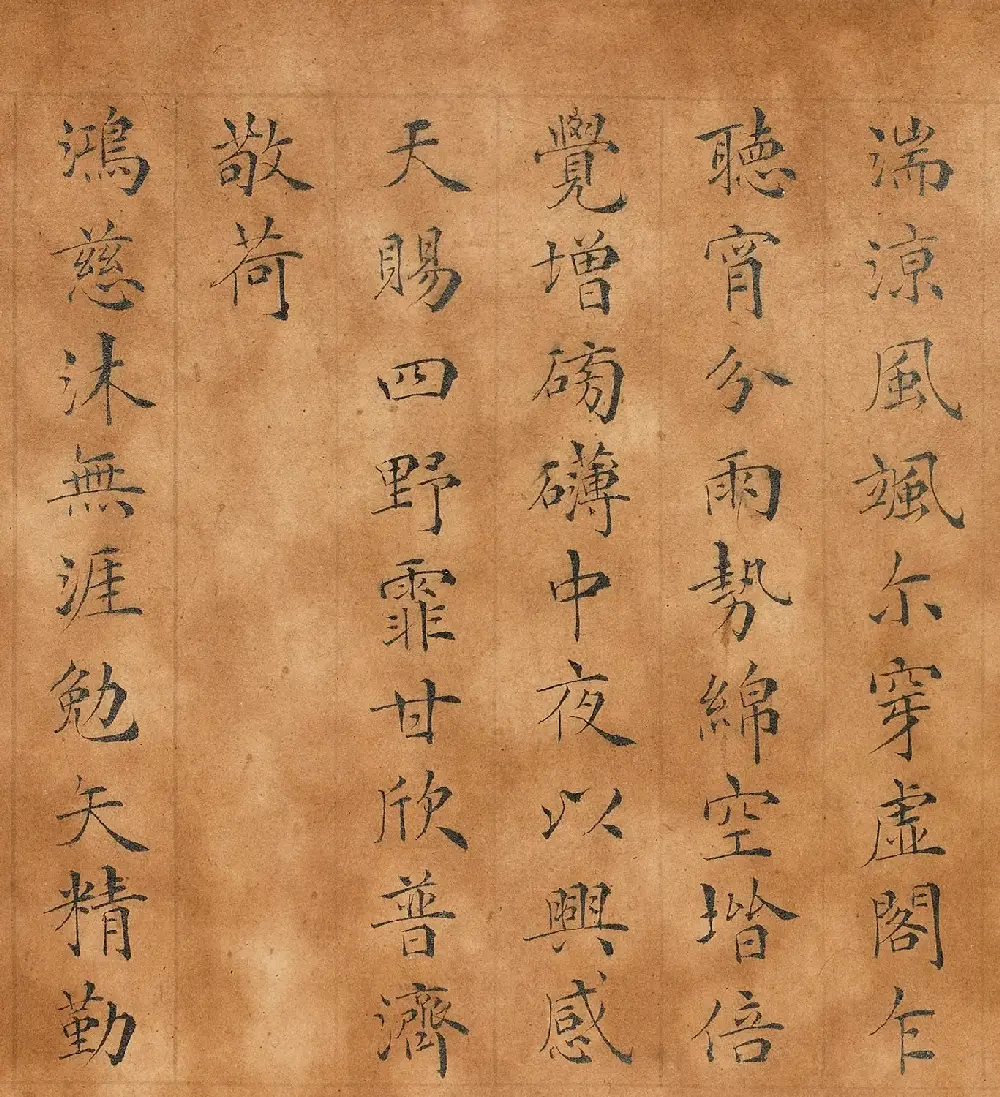 湍凉風颯尓穿虚閣乍
聴宵分雨勢綿空堦倍
覺増磅礴中夜以興感
天賜四野霏甘欣普濟
敬荷
鴻慈沐無涯勉矢精勤